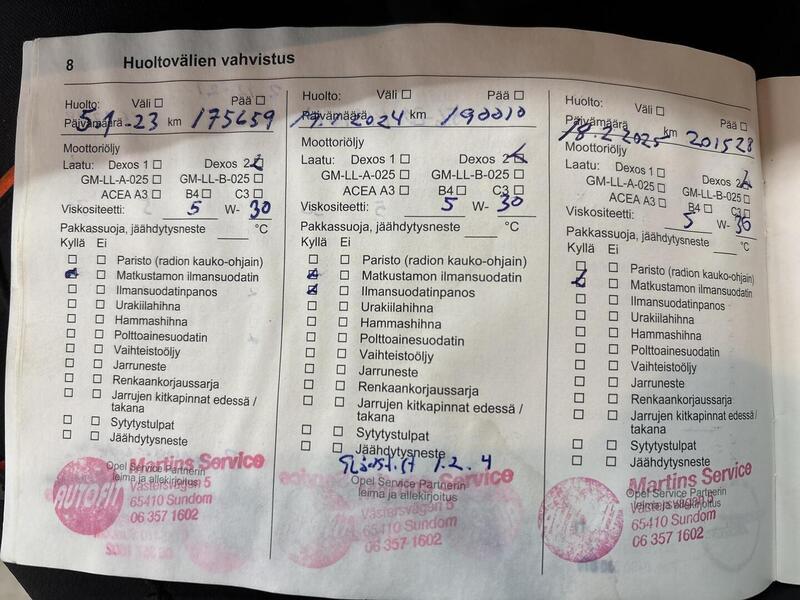 8 Huoltovälien vahvistus
Huolto: Väli Pää
Päivämäärä 5.1-23 km 175659
Moottoriöljy
Laatu: Dexos 1 Dexos 2
GM-LL-A-025 GM-LL-B-025
ACEA A3 B4 C3
Viskositeetti: 5 W- 30
Pakkassuoja, jäähdytysneste °C
Kyllä Ei
Paristo (radion kauko-ohjain)
Matkustamon ilmansuodatin
Ilmansuodatinpanos
Urakiilahihna
Hammashihna
Polttoainesuodatin
Vaihteistoöljy
Jarruneste
Renkaankorjaussarja
Jarrujen kitkapinnat edessä /
takana
Sytytystulpat
Jäähdytysneste
Opel Service Partnerin
leima ja allekirjoitus
AUTOFIT
Martins Service
Västersvägen 5
65410 Sundom
06 357 1602
Huolto: Väli Pää
Päivämäärä 2024 km 190010
Moottoriöljy
Laatu: Dexos 1 Dexos 2
GM-LL-A-025 GM-LL-B-025
ACEA A3 B4 C3
Viskositeetti: 5 W- 30
Pakkassuoja, jäähdytysneste °C
Kyllä Ei
Paristo (radion kauko-ohjain)
Matkustamon ilmansuodatin
Ilmansuodatinpanos
Urakiilahihna
Hammashihna
Polttoainesuodatin
Vaihteistoöljy
Jarruneste
Renkaankorjaussarja
Jarrujen kitkapinnat edessä /
takana
Sytytystulpat
Jäähdytysneste
1.2.4
Opel Service Partnerin
leima ja allekirjoitus
Service
Västersvägen 5
65410 Sundom
06 357 1602
Huolto: Väli Pää
Päivämäärä 18.2.2025 km 201528
Moottoriöljy
Laatu: Dexos 1 Dexos 2
GM-LL-A-025 GM-LL-B-025
ACEA A3 B4 C3
Viskositeetti: 5 W- 30
Pakkassuoja, jäähdytysneste °C
Kyllä Ei
Paristo (radion kauko-ohjain)
Matkustamon ilmansuodatin
Ilmansuodatinpanos
Urakiilahihna
Hammashihna
Polttoainesuodatin
Vaihteistoöljy
Jarruneste
Renkaankorjaussarja
Jarrujen kitkapinnat edessä /
takana
Sytytystulpat
Jäähdytysneste
Opel Service Partnerin
leima ja allekirjoitus
Martins Service
Västersvägen 5
65410 Sundom
06 357 1602